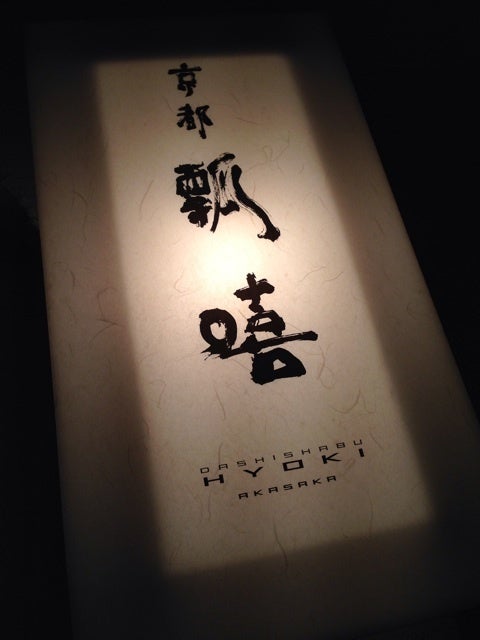 京都
瓢嘻
DASHISHABU
HYOKI
AKASAKA